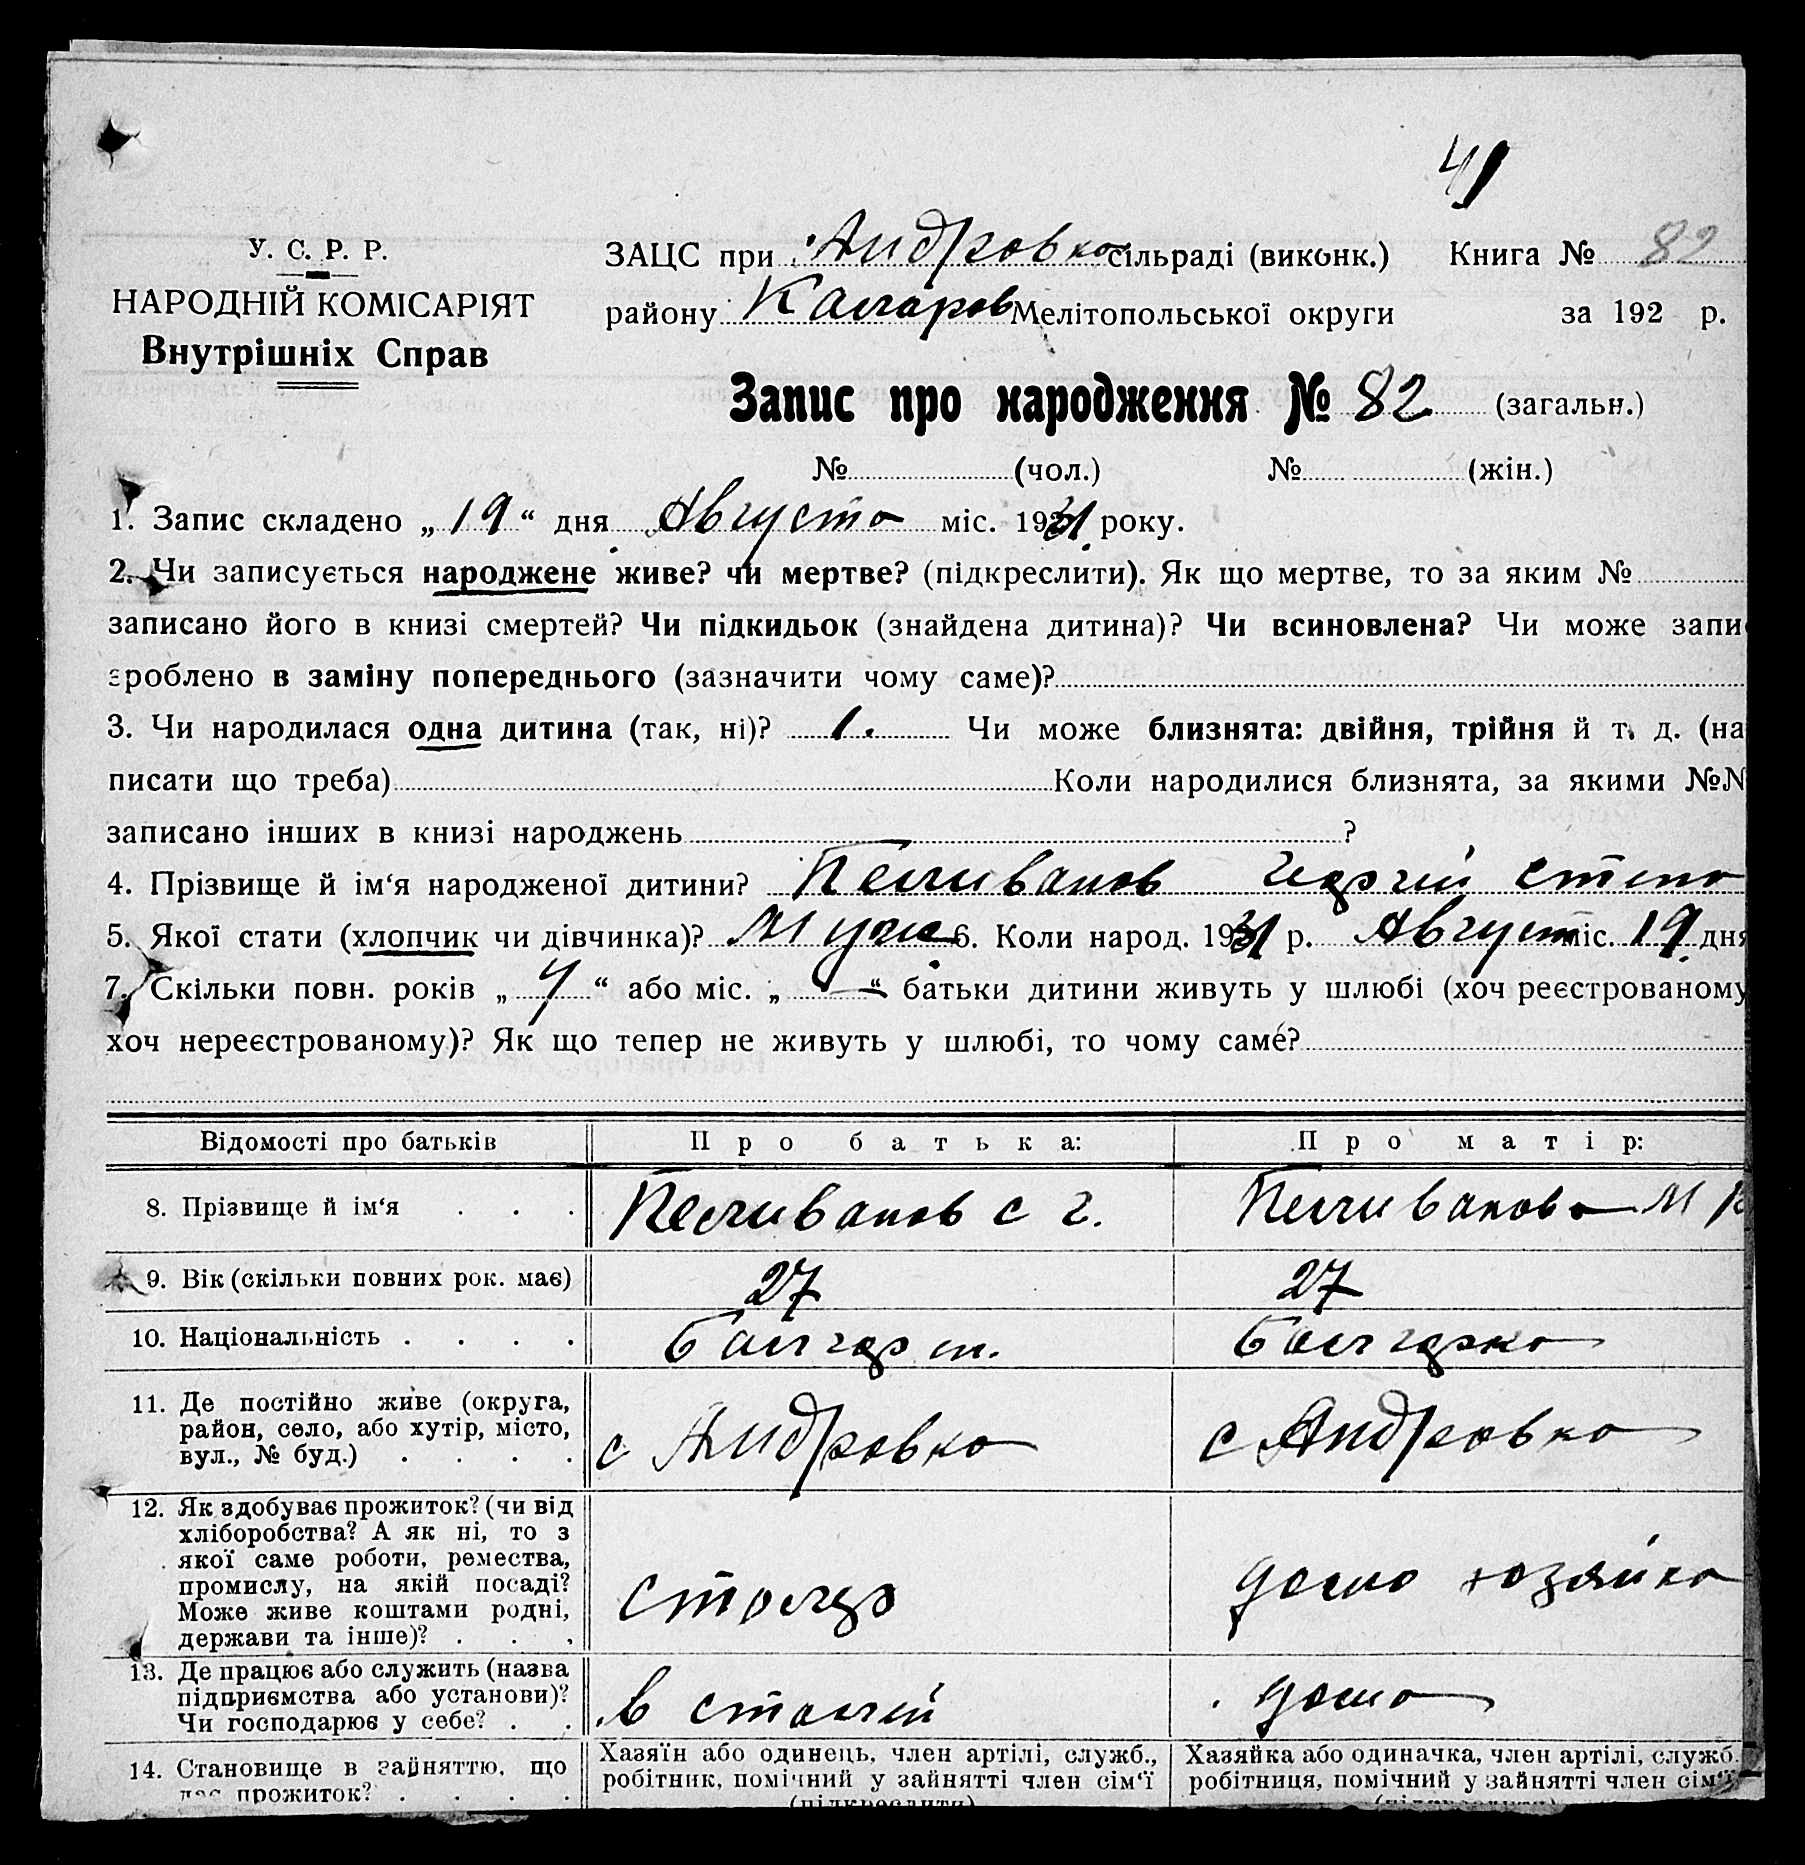 41
У. С. Р. Р.
НАРОДНІЙ КОМІСАРІЯТ
Внутрішніх Справ
ЗАЦС при Андровка сільраді (виконк.) Книга № 82
району Мелітопольської округи за 192 р.
Запис про народження № 82 (загальн.)
№ (чол.) № (жін.)
1. Запис складено „ 19 “ дня Августа міс. 1931 року.
2. Чи записується народжене живе? чи мертве? (підкреслити). Як що мертве, то за яким №
записано його в книзі смертей? Чи підкидьок (знайдена дитина)? Чи всиновлена? Чи може запи
зроблено в заміну попереднього (зазначити чому саме)?
3. Чи народилася одна дитина (так, ні)? 1. Чи може близнята: двійня, трійня й т. д. (на
писати що треба) Коли народилися близнята, за якими №№
записано інших в книзі народжень ?
4. Прізвище й ім‘я народженої дитини? Пеливанов Георгий Степа
5. Якої стати (хлопчик чи дівчинка)? Муж 6. Коли народ. 1931 р. Август міс. 19 дня
7. Скільки повн. років „ 4 “ або міс. „ — “ батьки дитини живуть у шлюбі (хоч реєстрованому
хоч нереєстрованому)? Як що тепер не живуть у шлюбі, то чому саме?
Відомості про батьків Про батька: Про матір:
8. Прізвище й ім‘я . . . Пеливанов С Г. Пеливанова М
9. Вік (скільки повних рок. має) 27 27
10. Національність . . . . Болгарин. Болгарка
11. Де постійно живе (округа,
район, село, або хутір, місто,
вул., № буд.) . . . . с Андровка с Андровка
12. Як здобуває прожиток? (чи від
хліборобства? А як ні, то з
якої саме роботи, ремества,
промислу, на якій посаді?
Може живе коштами родні,
держави та інше)? . . . столяр домо хозяйка
13. Де працює або служить (назва
підприємства або установи)?
Чи господарює у себе? . . в дома
14. Становище в зайняттю, що
дає прожиток? . . . .
Хазяїн або одинець, член артілі, служб.,
робітник, помічний у зайнятті член сім‘ї
(підкреслити)
Хазяйка або одиначка, член артілі, служб.
робітниця, помічний у зайнятті член сім‘ї
(підкреслити)